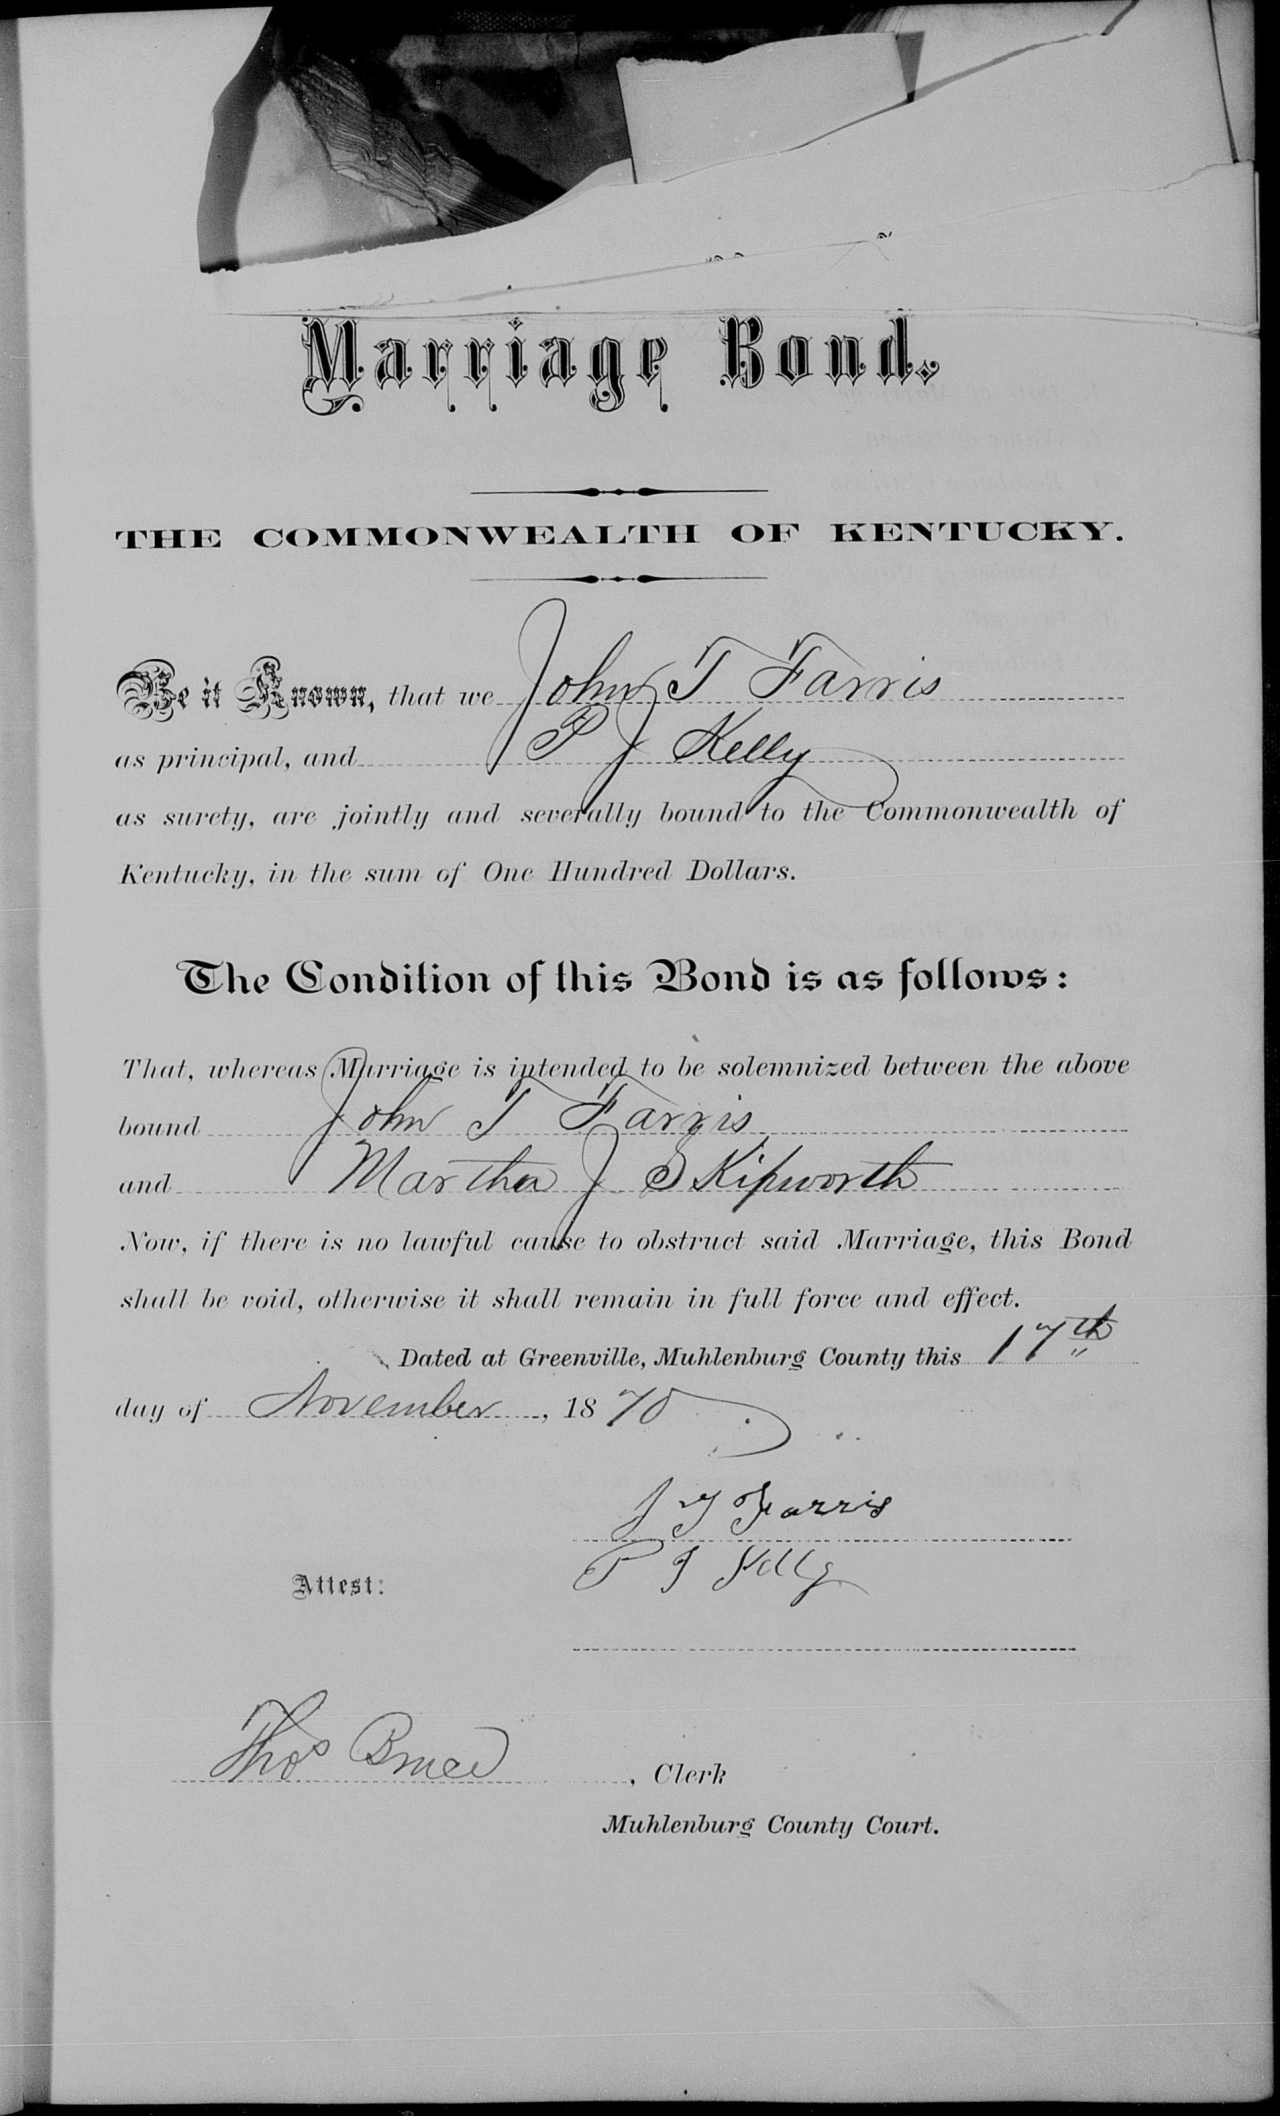 Marriage Bond.
THE COMMONWEALTH OF KENTUCKY.
Be it Known, that we John T Farris
as principal, and P J Kelly
as surety, are jointly and severally bound to the Commonwealth of
Kentucky, in the sum of One Hundred Dollars.
The Condition of this Bond is as follows:
That, whereas Marriage is intended to be solemnized between the above
bound John T Farris
and Martha J Skipworth
Now, if there is no lawful cause to obstruct said Marriage, this Bond
shall be void, otherwise it shall remain in full force and effect.
Dated at Greenville, Muhlenburg County this 17th
day of November, 1870
J T Farris
P J Kelly
Attest:
Thos Bruce, Clerk
Muhlenburg County Court.